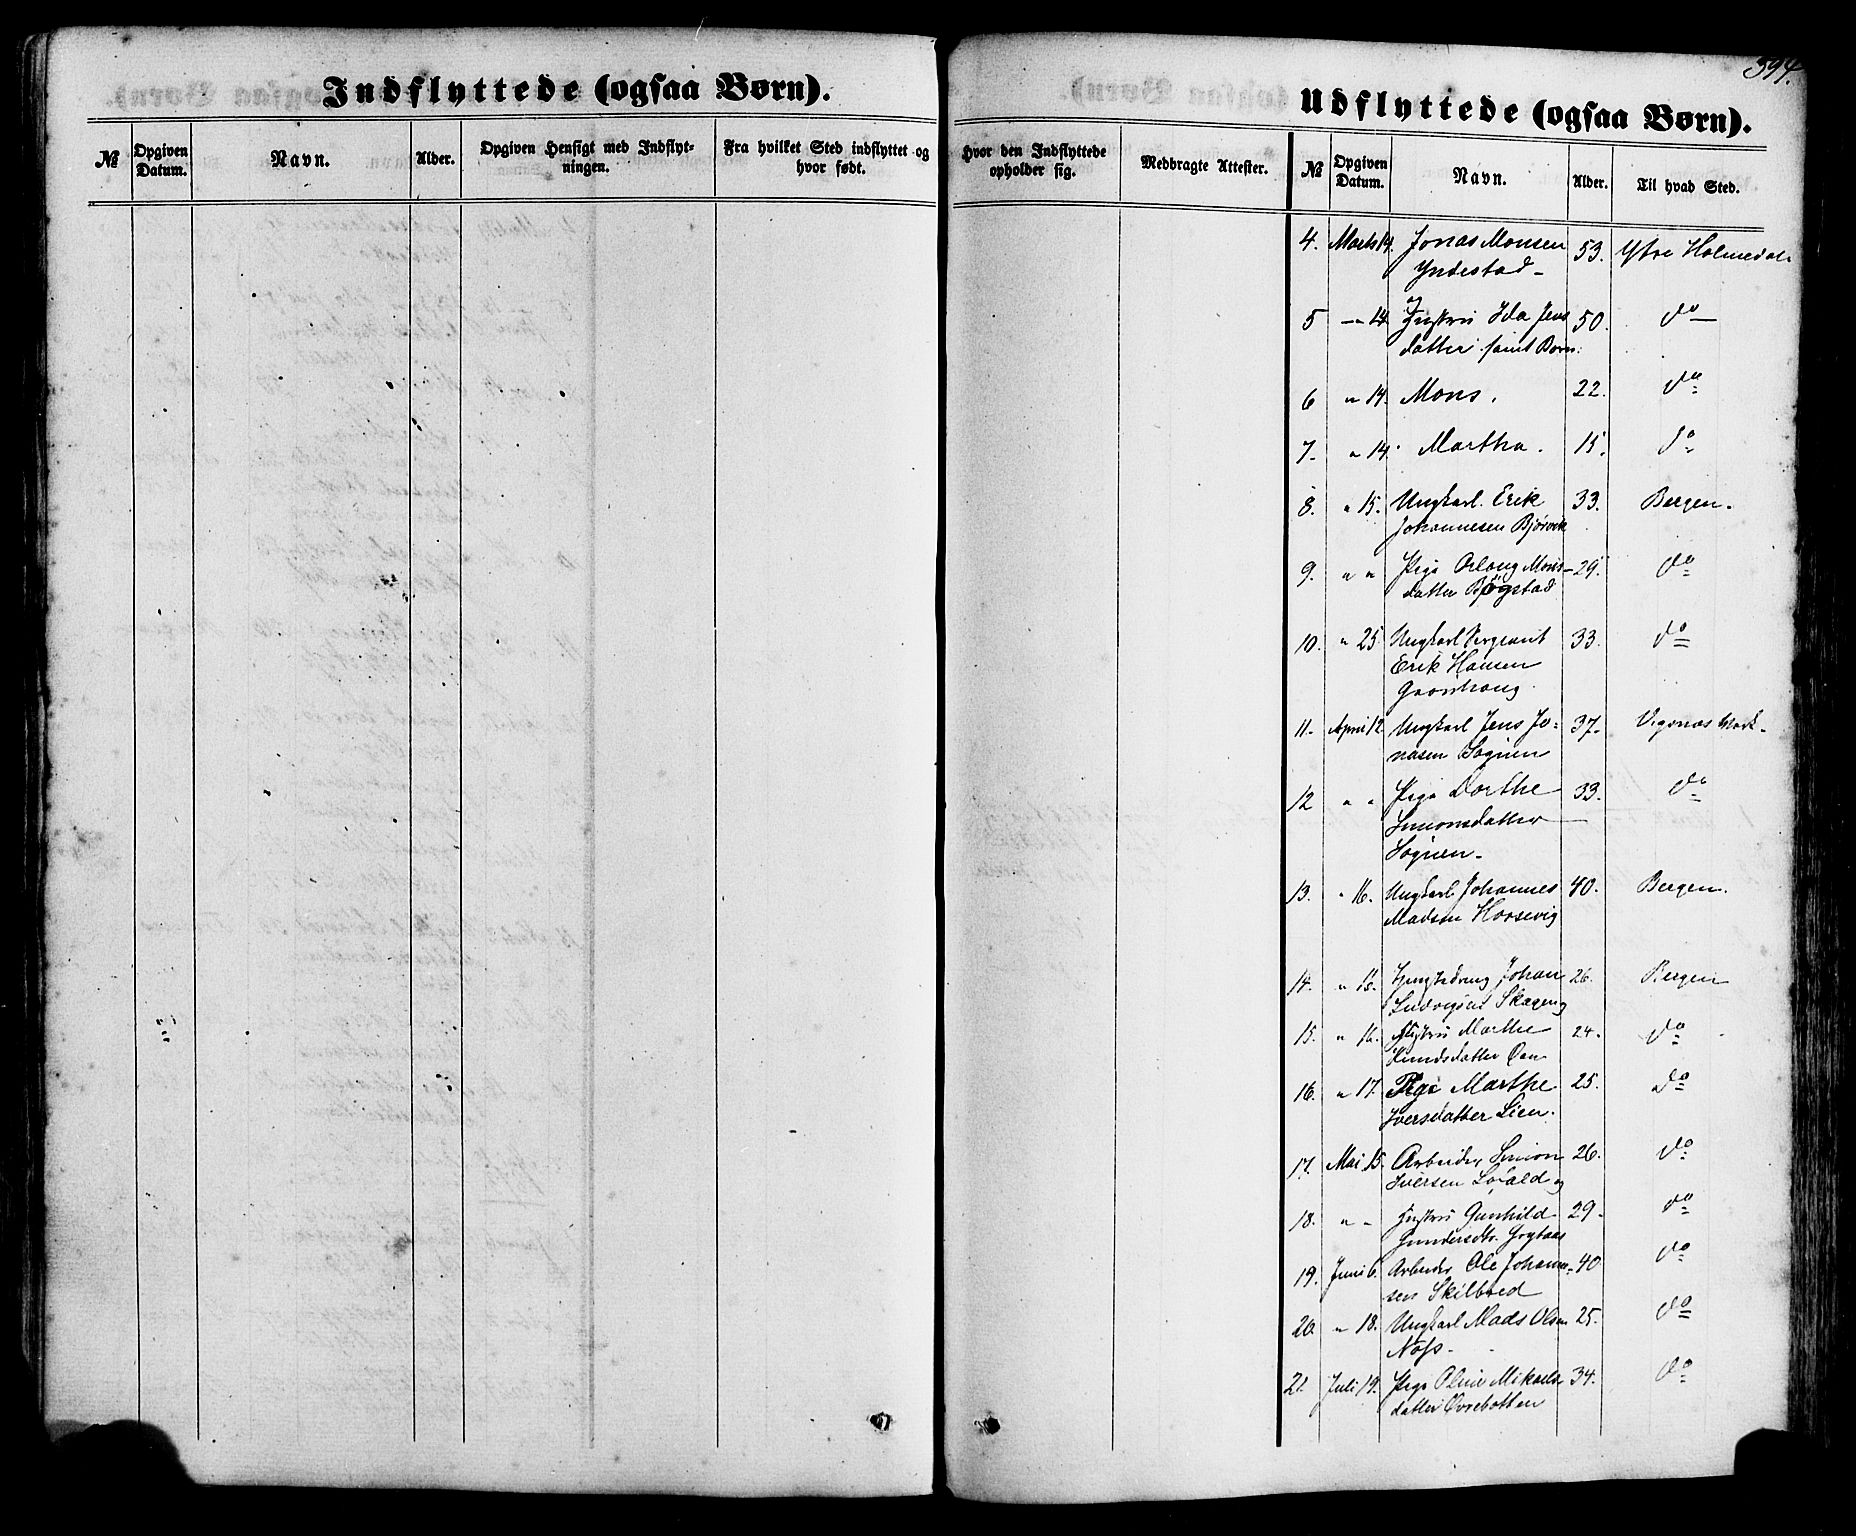 594.
Indflyttede (ogsaa Børn).
№ Opgiven Datum. Navn. Alder. Opgiven Hensigt med Indflyt-
ningen. Fra hvilket Sted indflyttet og
hvor født.
Udflyttede (ogsaa Børn).
Hvor den Indflyttede
opholder sig. Medbragte Attester. № Opgiven Datum. Navn. Alder. Til hvad Sted.
4. Marts 14. Jonas Monsen 53. Ytre Holmedal
Yndestad
5 " 14 Hustru Ida Jens 50. do
datter samt Børn:
6 " 14. Mons. 22. do
7. " 14. Martha. 15. do
8. " 15. Ungkarl. Erik 33. Bergen.
Johannesen Bjørvik
9. " " Pige Oslaug Mons- 29. do
datter Bjøgstad
10. " 25. Ungkarl Sergeant 33. do
Erik Hansen
11. April 12 Ungkarl Jens Jo= 37. Vigenæs Mark.
nasen Sognen
12 " " Pige Dorthe 33. do
Simonsdatter
Sognen.
13. " 16. Ungkarl Johannes 40. Bergen.
Madsen Horsevig
14. " 16. Johan 26. Bergen
Ludvigsen Skagen og
15. " 16. Hustru Marthe 24. do
16. " 17. Pige Marthe 25. do
Iversdatter Lien.
17. Mai 15. Arbeider Simon 26. do
Iversen og
18. " " Hustru Gunhild 29. do
Gundersdtr.
19. Juni 6. Arbeider Ole Johanne= 40. do
sen Skilbred
20. " 18. Ungkarl Mads Olsen 25. do
21. Juli 19. Pige Oline Mikaels 34. do
datter Øvrebotten